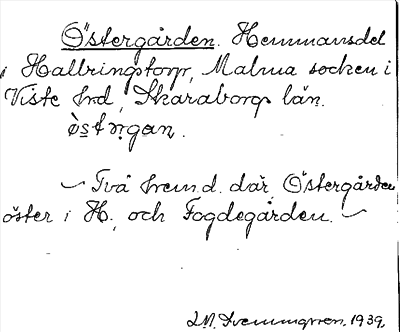 Östergården. Hemmansdel
i Hallbringstorp, Malma socken i
Viste hrd, Skaraborgs län.
Två hem.d. där, Östergården
öster i H., och Fogdegården.
1939.